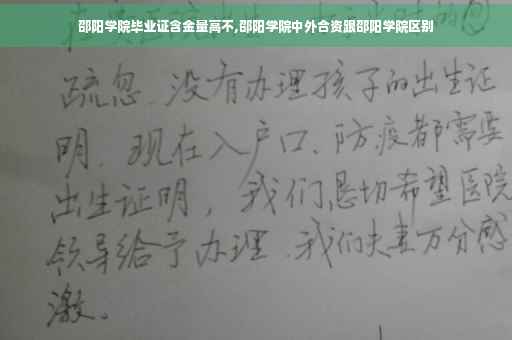 邵阳学院毕业证含金量高不,邵阳学院中外合资跟邵阳学院区别
疏忽、没有办理孩子的出生证
明、现在入户口、防疫都需要
出生证明，我们恳切希望医院
领导给予办理、我们夫妻万分感
激。